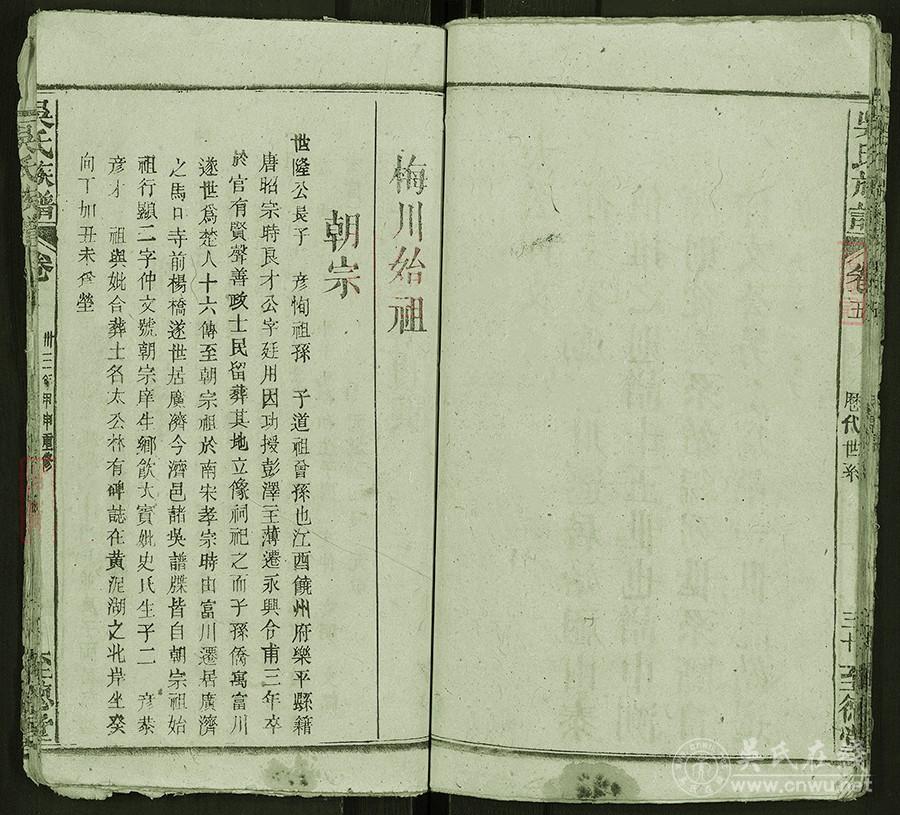 吳氏族譜
卷五
歷代世系
三十
至德堂
梅川始祖
朝宗
世隆公長子 彦恂祖孫 子道祖曾孫也江酉饒州府樂平縣籍
唐昭宗時良才公字廷用因功授彭澤主薄遷永興令甫三年卒
於官有賢聲善政士民留葬其地立像祠祀之而子孫僑寓富川
遂世爲楚人十六傳至朝宗祖於南宋孝宗時由富川遷居廣濟
之馬口寺前楊橋遂世居廣濟今濟邑諸吳譜牒皆自朝宗祖始
祖行顯二字仲文號朝宗庠生鄉飲大賓妣史氏生子二 彦恭
彦才 祖與妣合葬土名太公林有碑誌在黃泥湖之北岸坐癸
向丁加丑未爲塋
吳氏族譜
卷
卅三年甲申重修
至德堂
吳氏在線
www.cnwu.net